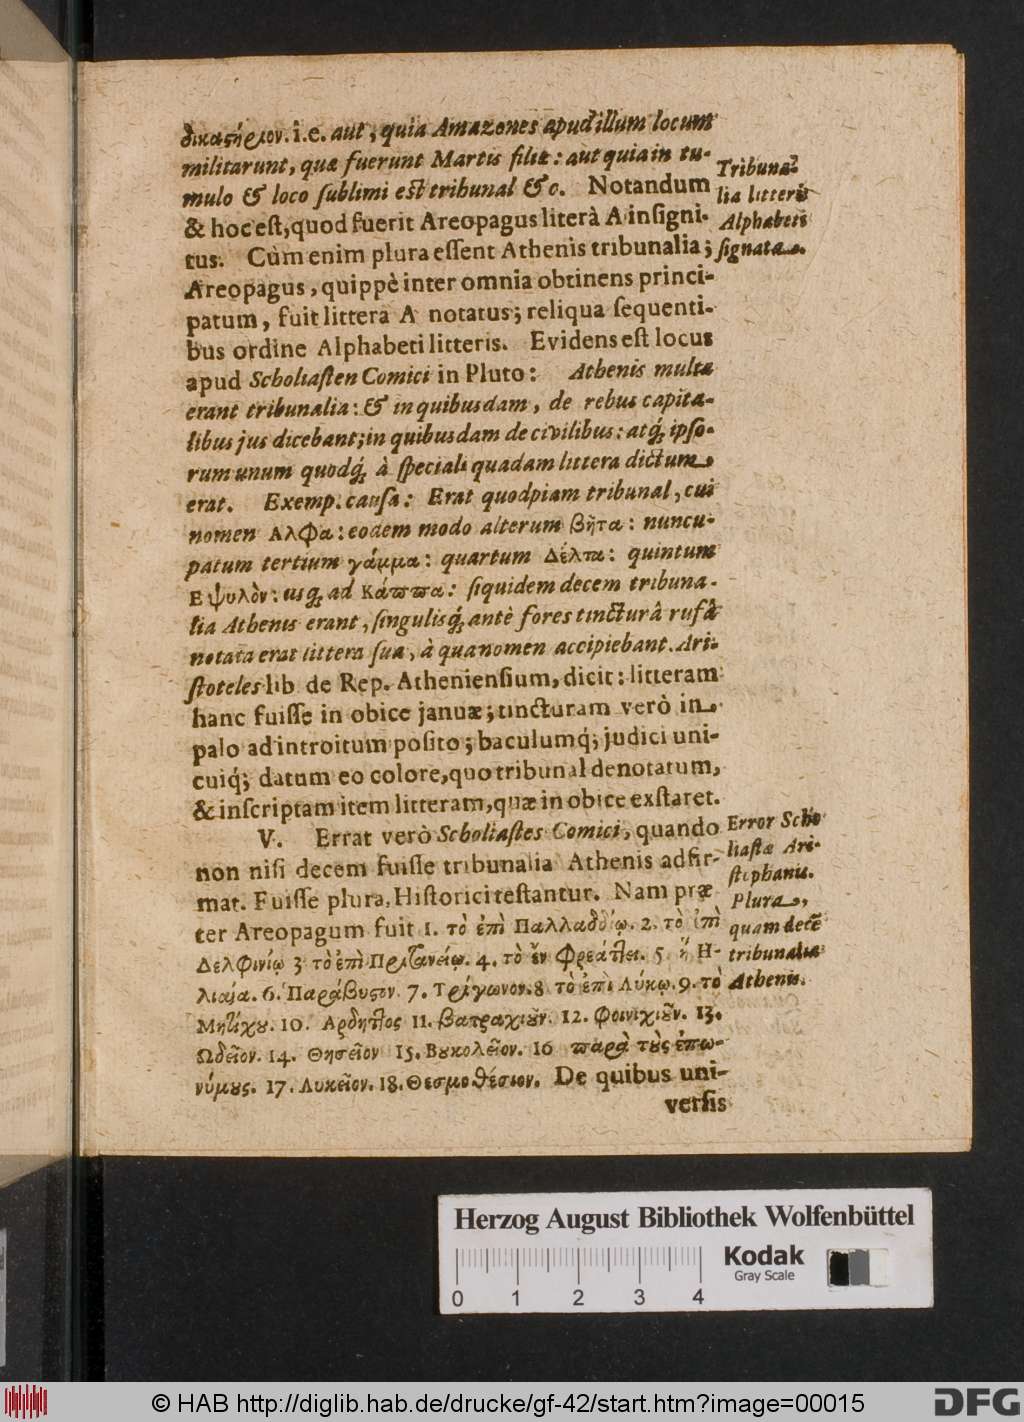 δικαςήριον. i.e. aut, quia Amazones apud illum locum
militarunt, quæ fuerunt Martis filiæ: aut quia in tu-
mulo & loco ſublimi est tribunal &c. Notandum
& hoc eſt, quod fuerit Areopagus literà A inſigni-
tus. Cùm enim plura eſſent Athenis tribunalia;
Areopagus, quippè inter omnia obtinens princi-
patum, fuit littera A notatus; reliqua ſequenti-
bus ordine Alphabeti litteris. Evidens eſt locus
apud Scholiaſten Comici in Pluto: Athenis multa
erant tribunalia: & in quibusdam, de rebus capita-
libus jus dicebant; in quibusdam de civilibus: atq́ ipſo-
rum unum quodq́ à ſpeciali quadam littera dictum
erat. Exemp. cauſa: Erat quodpiam tribunal, cui
nomen Αλφα: eodem modo alterum βῆτα: nuncu-
patum tertium γάμμα: quartum Δέλτα: quintum
Εψυλὸν: usq́ ad Κάππα: ſiquidem decem tribuna-
lia Athenis erant, ſingulisq́ antè fores tincturâ rufâ
notata erat littera ſua, à qua nomen accipiebant. Ari-
ſtoteles lib de Rep. Athenienſium, dicit: litteram
hanc fuiſſe in obice januæ; tincturam verò in
palo ad introitum poſito; baculumq́; judici uni-
cuiq́; datum eo colore, quo tribunal denotatum,
& inſcriptam item litteram, quæ in obice exſtaret.
V. Errat verò Scholiaſtes Comici, quando
non niſi decem fuiſſe tribunalia Athenis adfir-
mat. Fuiſſe plura, Hiſtorici teſtantur. Nam præ
ter Areopagum fuit 1. τὸ ἐπὶ Παλλαδίῳ. 2. τὸ ἐπὶ
Δελφινίῳ 3 τὸ ἐπὶ Πρυτανείῳ. 4. τὸ ἐν Φρεάττει. 5. ἡ Η-
λιαία. 6. Παράβυςον. 7. Τρίγωνον. 8 τὸ ἐπὶ Λύκῳ. 9. τὸ
Μητίχου. 10. Αρδηττος 11. βατραχιοῦν. 12. Φοινικιοῦν. 13.
Ωδεῖον. 14. Θησεῖον 15. Βουκολεῖον. 16 παρὰ τοὺς ἐπω-
νύμους. 17. Λυκεῖον. 18. Θεσμοθέσιον. De quibus uni-
verſis
Tribuna-
lia litteris
Alphabeti
ſignata.
Error Scho
liaſtæ Ari-
ſtophanis.
Plura,
quam decē
tribunalia
Athenis.
Herzog August Bibliothek Wolfenbüttel
Kodak
Gray Scale
0 1 2 3 4
© HAB http://diglib.hab.de/drucke/gf-42/start.htm?image=00015
DFG